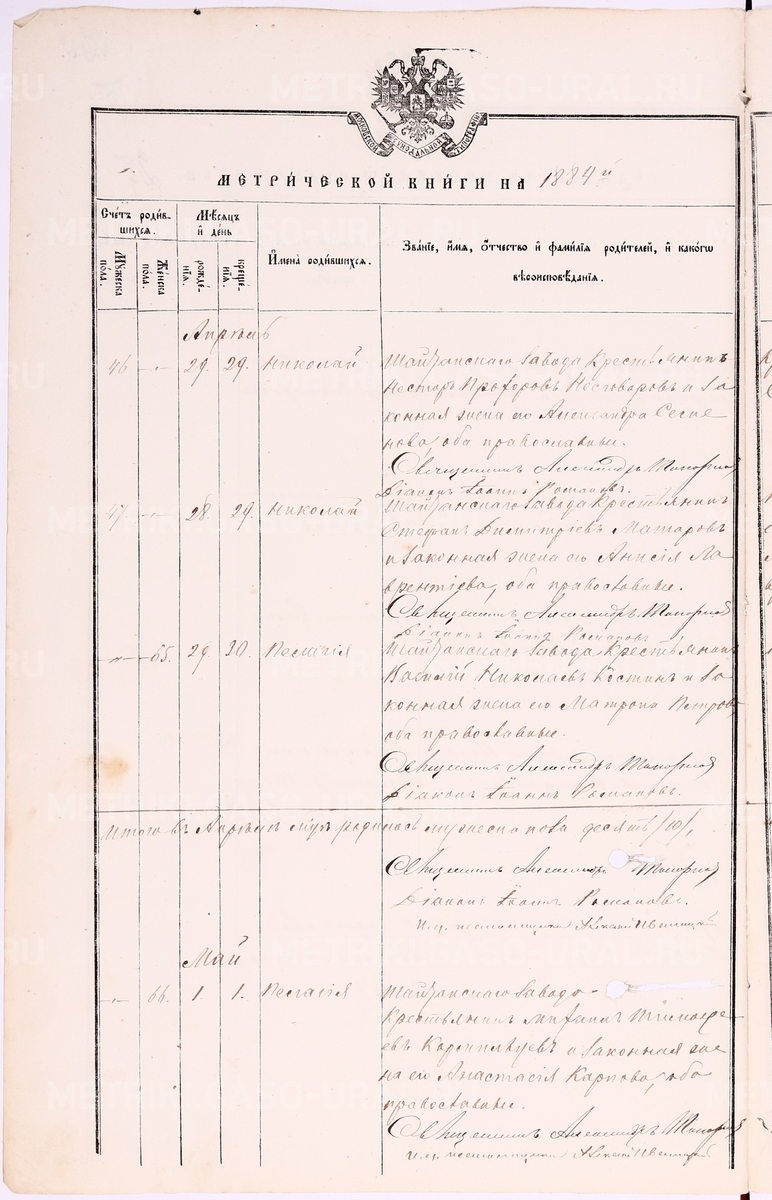 МОСКОВСКОЙ СУНОДАЛЬНОЙ ТИПОГРАФІИ
МЕТРИ́ЧЕСКОЙ КНИ́ГИ НА 1884й
Сче́тъ роди́в-
шихся.
Му́жеска
пола.
Же́нска
пола.
Мѣ́сяцъ
и де́нь
рожде́-
нія.
креще́-
нія.
Имена̀ роди́вшихся.
Зва́ніе, и́мя, о́тчество и фами́лія роди́телей, и како́гѡ
вѣроисповѣ́данія.
Апрѣль
46 29. 29. Николай
Шайтанскаго завода крестьянинъ
Несторъ Прохоровъ и за
конная жена его Александра Семе
нова, оба православные.
Священникъ Александръ Топорковъ
Діаконъ Іоаннъ Романовъ.
47 28. 29. Николай
Шайтанскаго завода крестьянинъ
Стефанъ Димитріевъ Матаровъ
и законная жена его Анисія Ла
врентіева, оба православные.
Священникъ Александръ Топорковъ
Діаконъ Іоаннъ Романовъ
65. 29. 30. Пелагія
Шайтанскаго завода крестьянинъ
Василій Николаевъ Костинъ и за
конная жена его Матрона Петрова,
оба православные.
Священникъ Александръ Топорковъ
Діаконъ Іоаннъ Романовъ.
Итого въ Апрѣлѣ м-цѣ родилось мужеска пола десять /10/,
Священникъ Александръ
Діаконъ Іоаннъ Романовъ.
И. д. псаломщика Алексій
Май
66. 1. 1. Пелагія
Шайтанскаго завода
крестьянинъ Тимоѳе-
евъ и законная же
на его Анастасія Карпова, оба
православные.
Священникъ Александръ
И. д. псаломщика Алексій